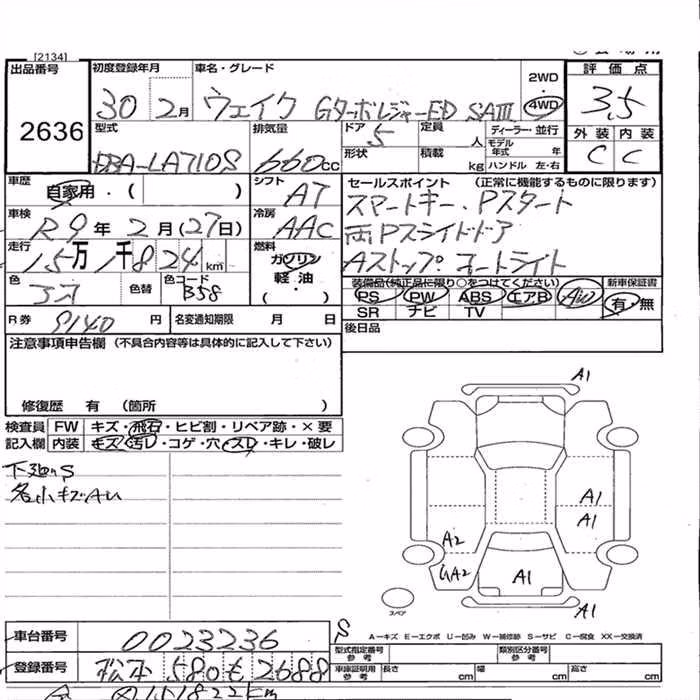 [2134]
出品番号 初度登録年月 車名・グレード 2WD 評価点
2636 30 2月 ウェイク GターボレジャーED SAⅢ 4WD 3.5
型式 排気量 ドア 定員 ディーラー・並行 外装 内装
DBA-LA710S 660cc 5 人 モデル年式 年 C C
形状 積載 kg ハンドル 左・右
車歴 自家用・( ) シフト AT セールスポイント (正常に機能するものに限ります)
車検 R9年 2月(27日) 冷房 AAC スマートキー.Pスタート
両Pスライドドア
走行 15万 1千824km 燃料 ガソリン 軽油 ( ・ ) Aストップ.オートライト
色 色替 色コード B58 装備品(純正品に限り○をつけてください) 新車保証書
PS PW ABS エアB AW 有・無
SR ナビ TV
R券 9140円 名変通知期限 月 日 後日品
注意事項申告欄 (不具合内容等は具体的に記入して下さい)
修復歴 有 (箇所 )
検査員 FW キズ・飛石・ヒビ割・リペア跡・×要
記入欄 内装 キズ・汚レ・コゲ・穴・スレ・キレ・破レ
下廻りS
各小キズAU
A1
A1
A1
A2
A2
A1
A1
スペア
S
A-キズ E-エクボ U-凹み W-補修跡 S-サビ C-腐食 XX-交換済
車台番号 0023236 型式指定番号 参考 類別区分番号 参考
登録番号 松本 580 も 2688 車庫証明用 参考 長さ cm 幅 cm 高さ cm
151822km